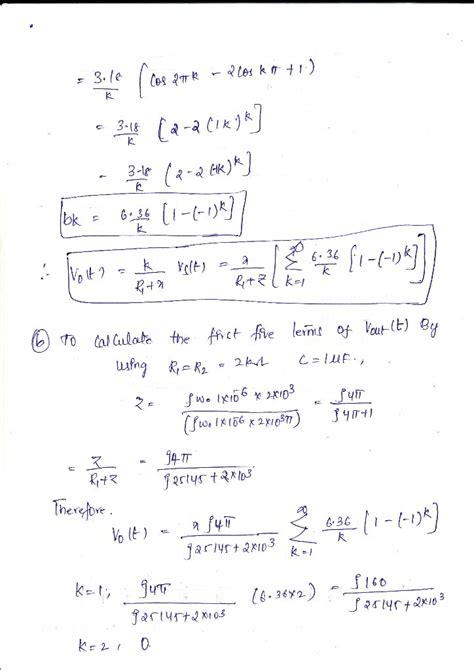 = 3.18/k [cos 2πk - 2cos kπ + 1)
= 3.18/k [2 - 2(1k)^k]
= 3.18/k (2 - 2(-1k)^k)
bk = 6.36/k [1-(-1)^k]
∴ V₀(t) = k/(R₁+x) Vs(t) = x/(R₁+Z) [∑_{k=1}^∞ 6.36/k [1-(-1)^k]]
(b) To Calculate the first five terms of Vout(t) By
using R₁=R₂ = 2kΩ C = 1μF.,
Z = (jω₀ 1×10^6 × 2×10^3)/(jω₀ 1×10^6 × 2×10^3π) = j4π/(j4π+1)
= Z/(R₁+Z) = j4π/(j25145+2×10^3)
Therefore.
V₀(t) = x j4π/(j25145+2×10^3) ∑_{k=1}^∞ 6.36/k [1-(-1)^k]
k=1, j4π/(j25145+2×10^3) (6.36×2) = j160/(j25145+2×10^3)
k=2, 0